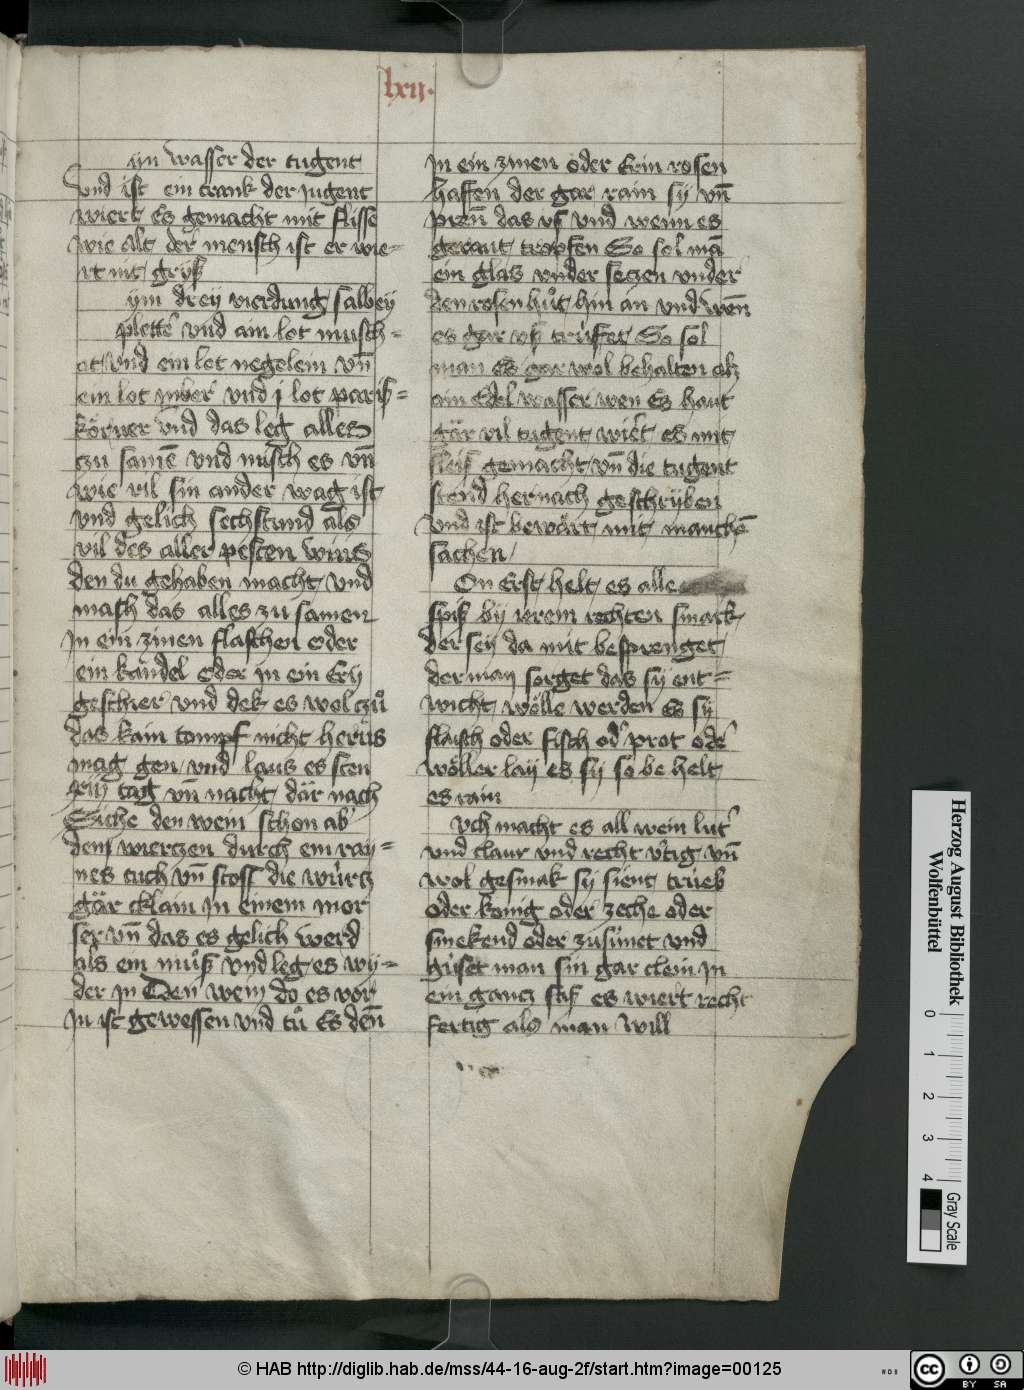 lxij.
jn wasser der tugent
vnd ist ein trank der jugent
wiert es gemacht mit flisse
wie alt der mensch ist er wie=
rt nit gryß
ym drey vierdung salbey
plettẽ vnd ain lot musch=
ot vnd ein lot negelein vn̄
ein lot jnber vnd j lot pariß=
körner vnd das leg alles
zu samẽ vnd misch es vn̄
wie vil sin ander wag ist
vnd gelich sechstund als
vil des aller pesten wins
den du gehaben macht vnd
mash das alles zu samen
Jn ein zinen flaschen oder
ein kandel oder jn ein Erij
geschier vnd dek es wol zuͦ
das kain tompf nicht herus
mag gen vnd laus es sten
xiij tag vn̄ nacht där nach
Siche den wein schon ab
dem wierczen durch ein ray=
nes tuch vn̄ stoss die würcz
gär cklain jn einem mor
ser vn̄ das es gelich werd
als ein muͦß vnd leg es wy=
der jn den wein do es vor
jn ist gewessen vnd tuͦ es den̄
Jn ein zinen oder Erin rosen
haffen der gar rain sy vn̄
pren̄ das vß vnd wenn es
geraut tropfen So sol mā
ein glas vnder seczen vnder
den rosen huͦt hin an vnd wen̄
es gar vß trüfet So sol
man es gar wol behalten alz
ain Edel wasser wen Es haut
gär vil tugent wiert es mit
fleiß gemacht vn̄ die tugent
stend hernach geschryben
vnd ist bewärt mit manchē
sachen
On Erst helt es alle
spiß bij irem rechten smack
der sey da mit besprenget
der man sorget das sy ent=
wicht wölle werden Es sy
flaisch oder fisch od' prot ode'
wöller lay es sy so be helt
es rain
Vch macht es all wein lut'
vnd claur vnd recht vertig vn̄
wol gesmak sy sient trüeb
oder konig oder zeche oder
smekend oder zusünet vnd
güset man sin gar clein jn
ein gancz faß es wiert recht
fertig als man will
Herzog August Bibliothek
Wolfenbüttel
0 1 2 3 4
Gray Scale
© HAB http://diglib.hab.de/mss/44-16-aug-2f/start.htm?image=00125
cc BY SA